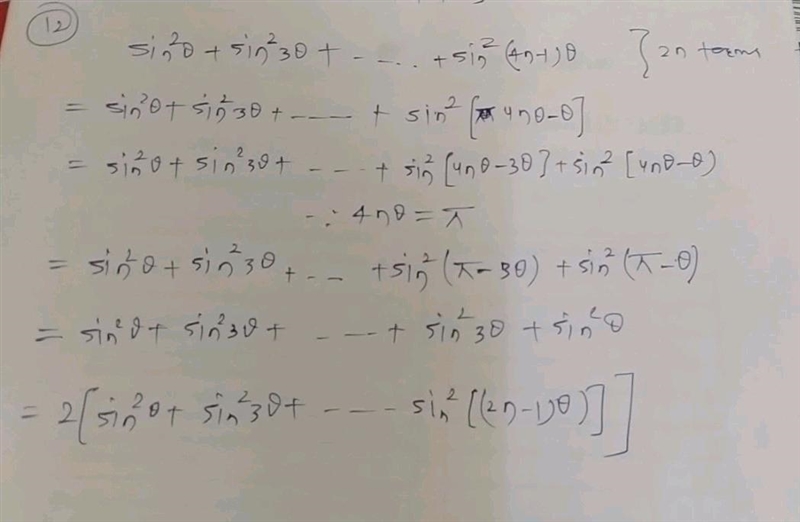 12
sin²θ + sin²3θ + - - - .. + sin²(4n-1)θ } 2n terms
= sin²θ + sin²3θ + - - - - + sin² [4nθ-θ]
= sin²θ + sin²3θ + - - - + sin² [4nθ-3θ] + sin² [4nθ-θ)
∵ 4nθ = π
= sin²θ + sin²3θ + - - + sin² (π-3θ) + sin² (π-θ)
= sin²θ + sin²3θ + - - - + sin²3θ + sin²θ
= 2[sin²θ + sin²3θ + - - - sin² [(2n-1)θ)]]